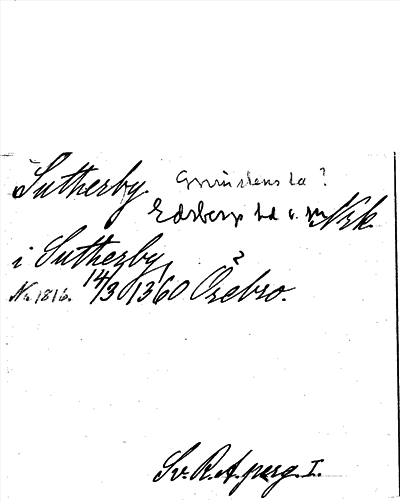 Sutherby. Grimstens hd ?
Edsbergs hd o. sn Nrk.
i Sutherby
No. 1816. 14/3 1360 Örebro.
Sv. R.A. perg. I.